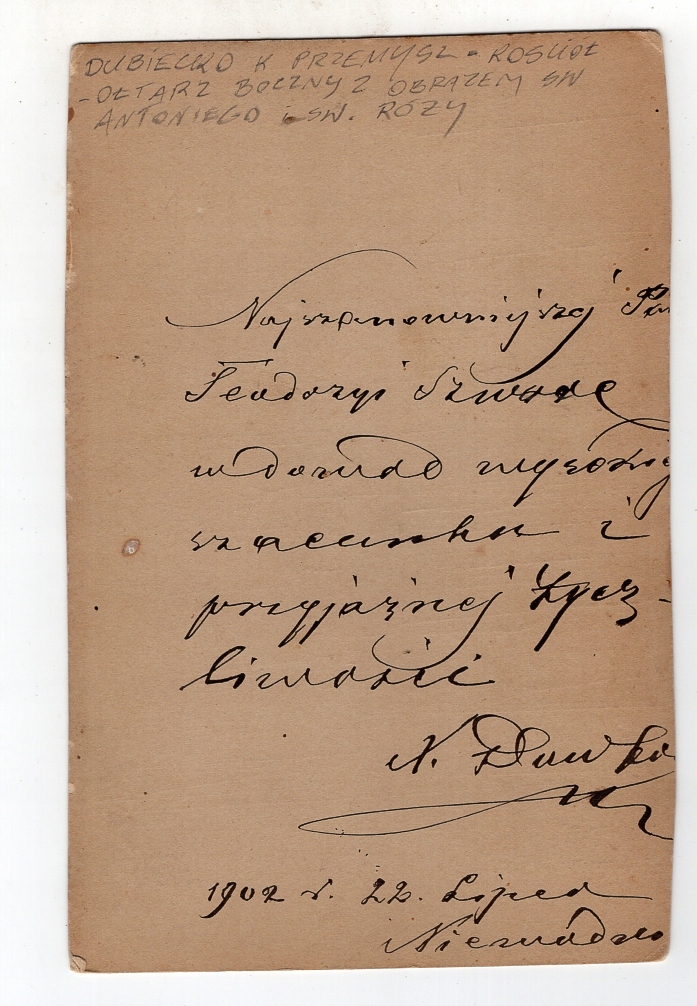 DUBIECKO K PRZEMYŚL - KOŚCIÓŁ
- OŁTARZ BOCZNY Z OBRAZEM ŚW
ANTONIEGO i ŚW. RÓŻY
Najszanowniejszej
Teodozyi
w dowód wysokiej
szacunku i
przyjaźnej życz-
liwości
N.
1902 r. 22. Lipca